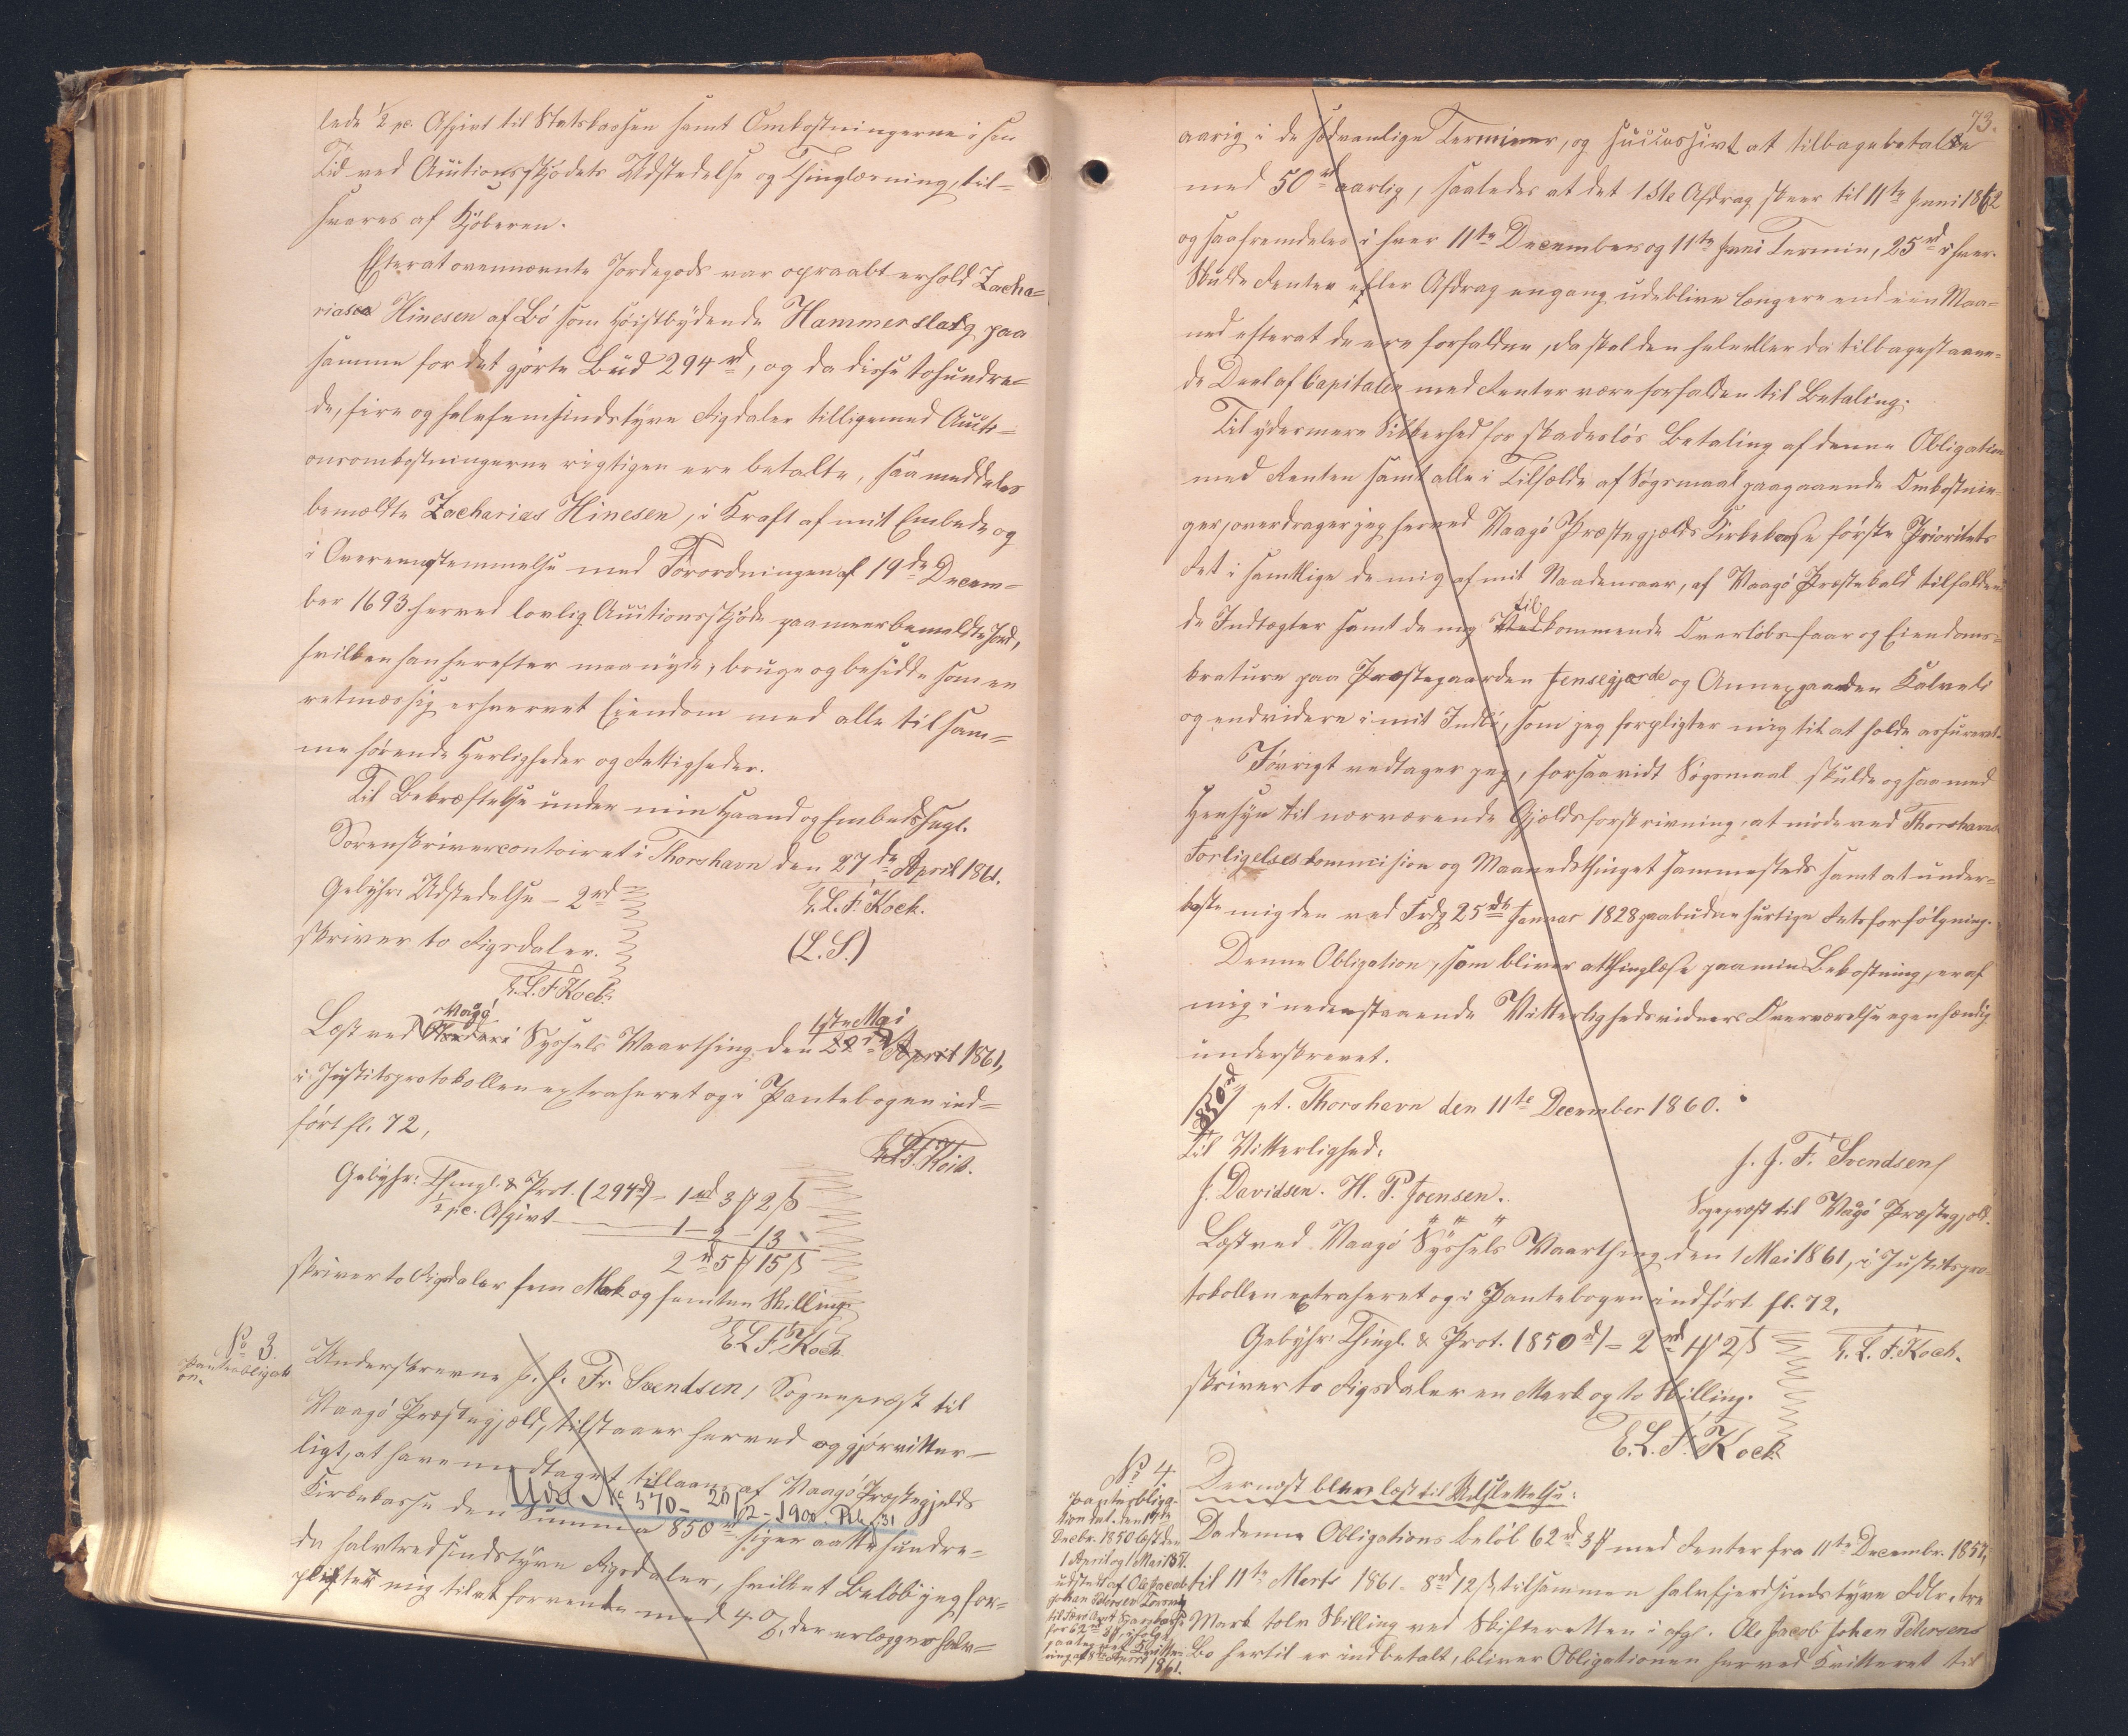 lede ½ pc. Afgivt til Statskassen samt Omkostningerne i sin
Tid ved Auctionsskjødets Udstedelse og Thinglæsning, til=
svares af Kjøberen.
Efterat ovennævnte Jordegods var opraabt erholdt Zacha=
rias Hinesen af Bø som høistbydende Hammerslag paa
samme for det gjorte Bud 294 rd, og da disse tohundre=
de, fire og halvfemsindstyve Rigsdaler tilligemed Aucti=
onsomkostningerne rigtigen ere betalte, saa meddeles
bemældte Zacharias Hinesen, i Kraft af mit Embede og
i Overeensstemmelse med Forordningen af 19de Decem=
ber 1693 herved lovlig Auctionsskjøde paa meerbemeldte Jord,
hvilken han herefter maa nyde, bruge og besidde som en
retmæssig erhvervet Eiendom med alle til sam=
me hørende Herligheder og Rettigheder.
Til Bekræftelse under min Haand og Embedssegl.
Sorenskrivercontoiret i Thorshavn den 27de April 1861.
Gebyhr: Udstedelse – 2 rd
E. L. F. Koch.
skriver to Rigsdaler.
(L. S.)
E. L. F. Koch.
Vaagø
1ste Mai
Læst ved Syssels Vaarthing den April 1861,
i Justitsprotokollen extraheret og i Pantebogen ind=
ført fl. 72,
E. L. F. Koch.
Gebyhr: Thingl. & Prot. (294 rd) – 1 rd 3 ℳ 2 ß
½ pc. Afgivt 1 – 2 – 13
2 rd 5 ℳ 15 ß
skriver to Rigsdaler fem Mark og femten Skilling.
E. L. F. Koch.
No 3.
Panteobligati
on.
Underskrevne J. J. Fr. Svendsen, Sognepræst til
Vaagø Præstegjæld, tilstaaer herved og gjør vitter=
ligt, at have modtaget tillaans af Vaagø Præstegjælds
Udsl. No 570 – 20/12 – 1900. Rk. 31
Kirkekasse den Summa 850 rd siger aattehundre=
de halvtredsindstyve Rigsdaler, hvilket Beløb jeg for=
pligter mig til at forrente med 4 %, der erlægges halv=
73.
aarig i de sædvanlige Terminer, og successivt at tilbagebetale
med 50 rd aarlig, saaledes at det 1ste Afdrag skeer til 11te Juni 1862
og saafremdeles i hver 11te December og 11te Juni Termin, 25 rd i hver.
Skulde Renter eller Afdrag engang udeblive længere end een Maa=
ned efterat de ere forfaldne, da skal den hele eller da tilbagestaaen=
de Deel af Capitalen med Renter være forfalden til Betaling.
Til ydermere Sikkerhed for skadesløs Betaling af denne Obligation
med Renten samt alle i Tilfælde af Søgsmaal paagaaende Omkostnin=
ger, overdrager jeg herved Vaagø Præstegjælds Kirkekasse første Prioritets
Ret i samtlige de mig af mit Naadensaar, af Vaagø Præstekald tilfalden=
til
de Indtægter samt de mig Vedkommende Overløbsfaar og Eiendoms=
kreature paa Præstegaarden Jensegjærde og Annexgaarden Kalvelid
og endvidere i mit Indbo, som jeg forpligter mig til at holde assureret.
Iøvrigt vedtager jeg, forsaavidt Søgsmaal skulde ogsaa med
Hensyn til nærværende Gjældsforskrivning, at møde ved Thorshavns
Forligelseskommision og Maanedsthinget sammesteds samt at under=
kaste mig den ved Frdg 25de Januar 1828 paabudne hurtige Retsforfølgning.
Denne Obligation, som bliver at thinglæse paa min Bekostning, er af
mig i nedenstaaende Vitterlighedsvidners Overværelse egenhændig
underskrevet.
/850 rd/ pt. Thorshavn den 11te December 1860.
Til Vitterlighed:
J. J. F. Svendsen
J. Davidsen. H. P. Joensen.
Sognepræst til Vaagø Præstegjæld.
Læst ved Vaagø Syssels Vaarthing den 1 Mai 1861, i Justitspro=
tokollen extraheret og i Pantebogen indført fl. 72.
Gebyhr: Thingl. & Prot. (850 rd) = 2 rd 1 ℳ 2 ß
E. L. F. Koch.
skriver to Rigsdaler en Mark og to Skilling.
E. L. F. Koch.
No 4.
Panteobliga-
tion dat. den 11te
Decbr. 1850 læst den
1 April og 1 Mai 1851.
udstedt af Ole Jacob
Johan Petersen
for 62 rd 3 ℳ, ifølge
paategnet Qvitte-
ring af 8de April 1861.
Dernæst blev læst til Udslettelse:
Da denne Obligations Beløb 62 rd 3 ℳ med Renter fra 11te Decembr. 1857,
til 11te Marts 1861 – 8 rd 12 ß, tilsammen halvfjerdsindstyve Rdlr. tre
Mark tolv Skilling ved Skifteretten i afg. Ole Jacob Johan Petersens
Bo hertil er indbetalt, bliver Obligationen herved Kvitteret til